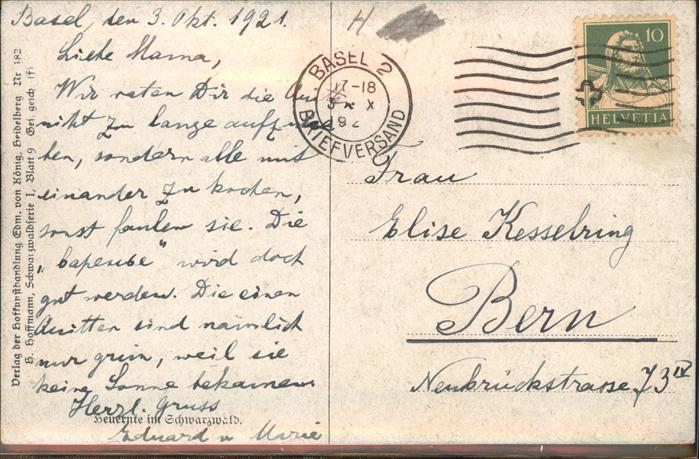 Basel, den 3. Okt. 1921.
Liebe Mama,
Wir raten Dir die
nicht zu lange aufzuhe
ben, sondern alle mit
einander zu kochen,
sonst faulen sie. Die
wird doch
gut werden. Die einen
Quitten sind nämlich
nur grün, weil sie
keine Sonne bekamen.
Herzl. Gruss
Eduard u Marie
Heuernte im Schwarzwald.
Verlag der Hofkunsthandlung Edm. von König, Heidelberg Nr 182
H. Hoffmann, Schwarzwaldserie I, Blatt 9 Ges. gesch (f)
H
BASEL 2
17-18
3 X
192
BRIEFVERSAND
10
HELVETIA
Frau
Elise Kesselring
Bern
Neubrückstrasse 73 IV